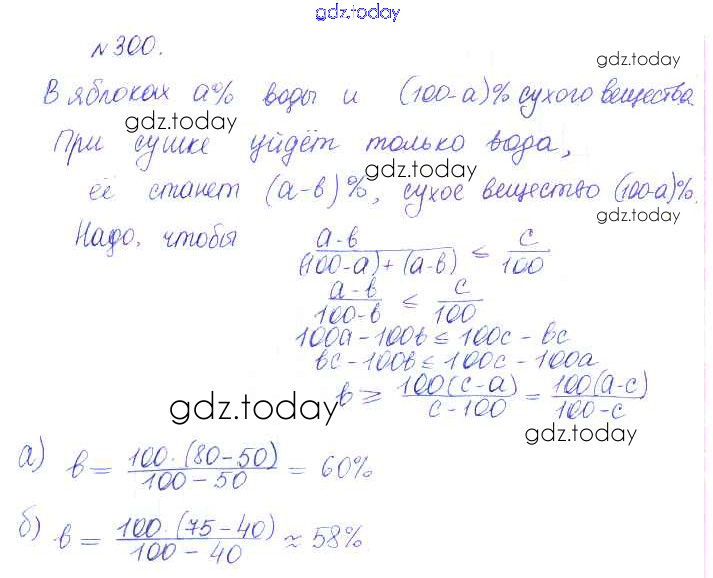 gdz.today
№300.
gdz.today
В яблоках a% воды и (100-a)% сухого вещества
gdz.today
При сушке уйдёт только вода,
gdz.today
её станет (a-в)%, сухое вещество (100-a)%.
gdz.today
Надо, чтобы (a-в)/((100-a)+(a-в)) ≤ c/100
(a-в)/(100-в) ≤ c/100
100a-100в ≤ 100c-вc
вc-100в ≤ 100c-100a
в ≥ 100(c-a)/(c-100) = 100(a-c)/(100-c)
gdz.today
gdz.today
а) в = 100·(80-50)/(100-50) = 60%
б) в = 100·(75-40)/(100-40) ≈ 58%